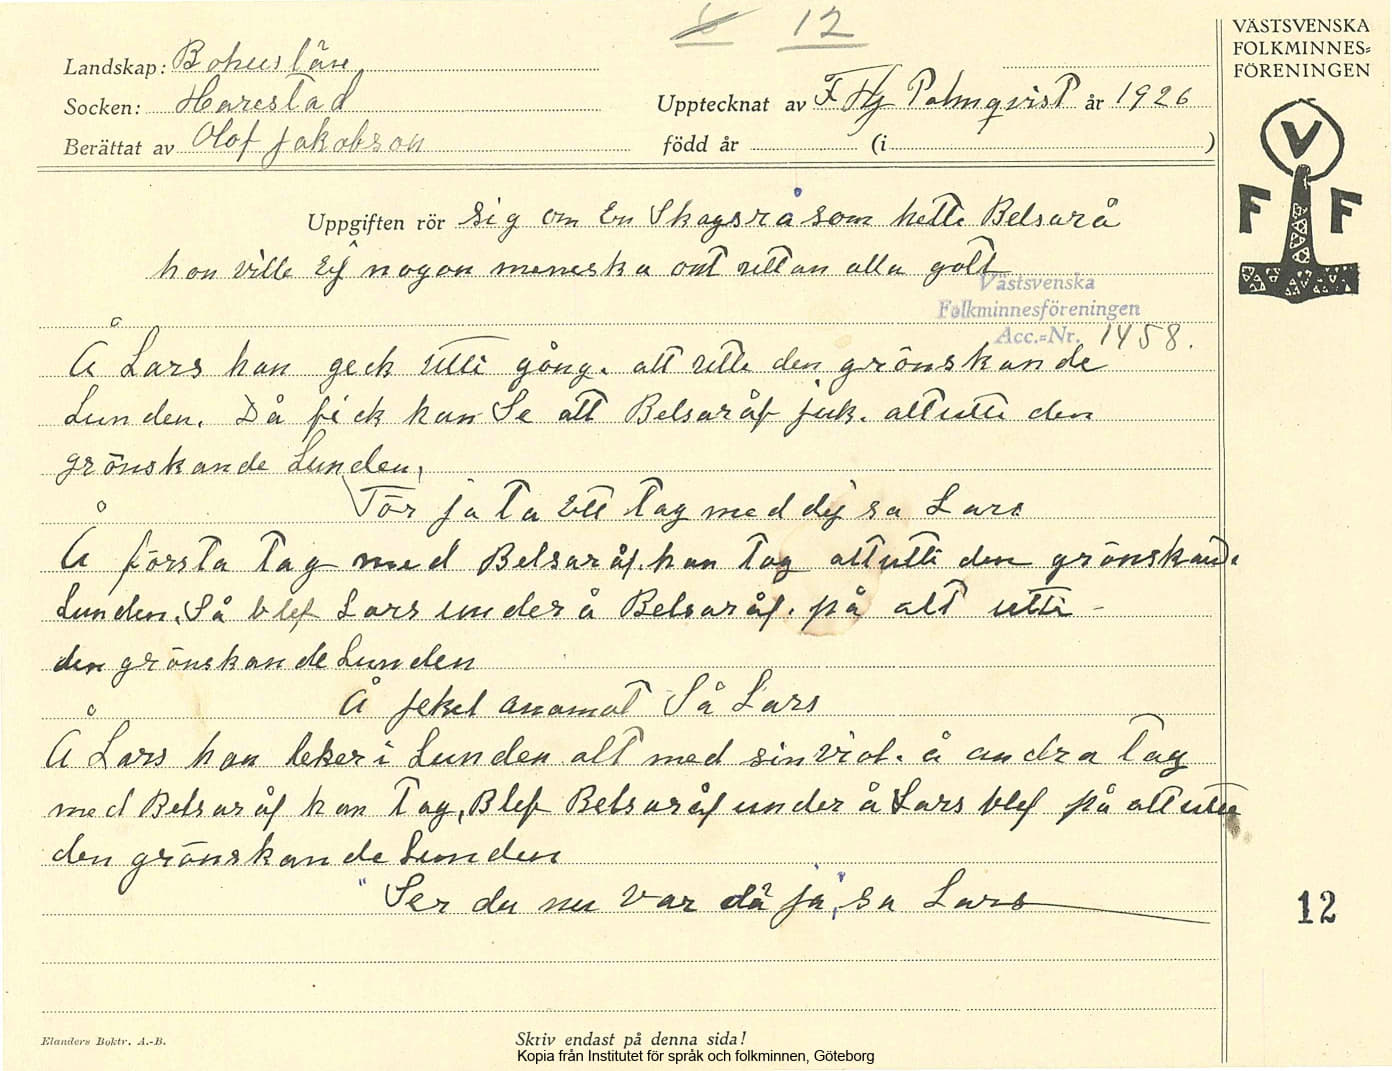 12
VÄSTSVENSKA
FOLKMINNES=
FÖRENINGEN
V
F F
Landskap: Bohuslän
Socken: Harestad
Upptecknat av F Hj Palmqvist år 1926
Berättat av Olof Jakobson
född år (i )
Uppgiften rör sig om En Skogsrå som hette Belsarå
hon ville Ej nogon meneska ont uttan alla gott
Västsvenska
Folkminnesföreningen
Acc.=Nr. 1458.
Å Lars han geck utti gång. alt utti den grönskande
Lunden. Då fick han Se alt Belsaråf juk. alt utti den
grönskande Lunden,
Tör ja ta Ett tag med dij sa Lars
Å första tag med Belsaråf. han tog alt utti den grönskande
Lunden. Så blef Lars under å Belsaråf. på alt utti
den grönskande Lunden
Å jekel anamat Så Lars
Å Lars han leker i Lunden alt med sin viol. å andra tag
med Belsaråf han tog, Blef Belsaråf under å Lars blef på alt utti
den grönskande Lunden
"Ser du nu var då ja", sa Lars
12
Elanders Boktr. A.-B.
Skriv endast på denna sida!
Kopia från Institutet för språk och folkminnen, Göteborg